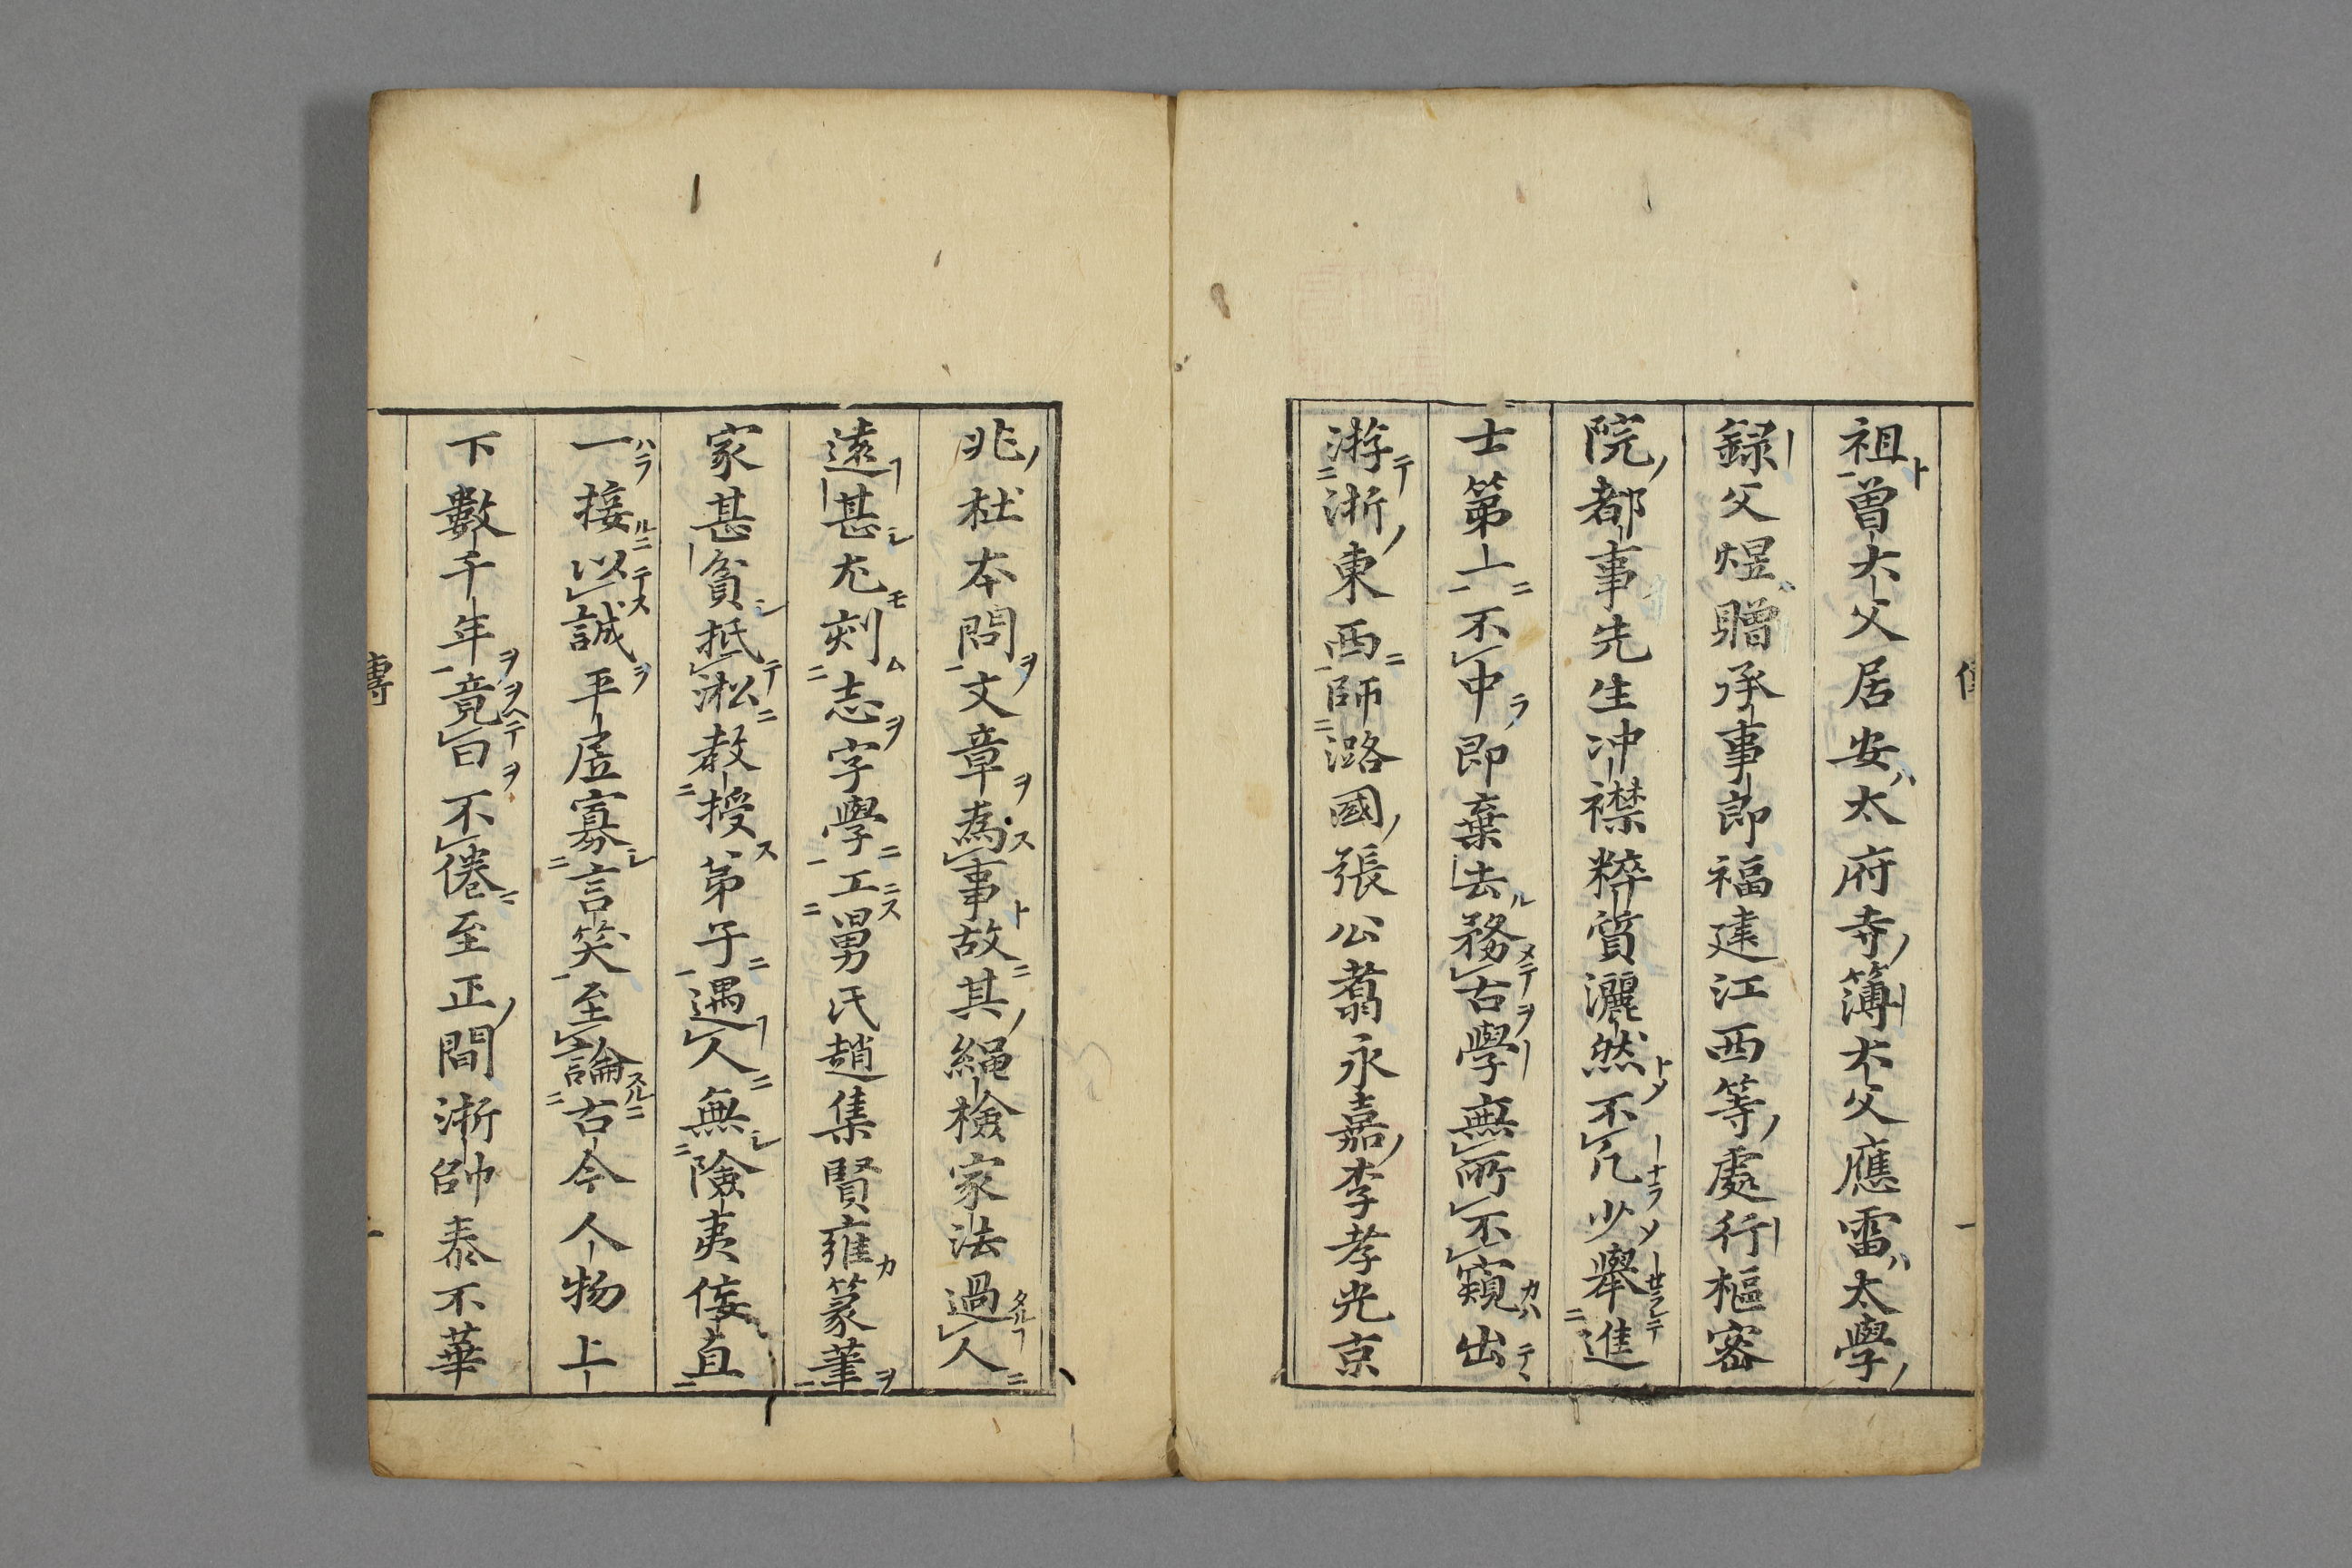 祖曽大父居安太府寺簿大父應雷太學
録父煜贈承事郎福建江西等處行樞密
院都事先生冲襟粹質灑然不凡少舉進
士第上不中即棄去務古學無所不窺出
游浙東西師潞國張公翥永嘉李孝光京
兆杜本問文章為事故其繩檢家法過人
遠甚尤刻志字學工舅氏趙集賢雍篆筆
家甚貧抵淞教授弟子遇人無險夷佞直
一接以誠平居寡言笑至論古今人物上
下數千年竟日不倦至正間浙帥泰不華
傳